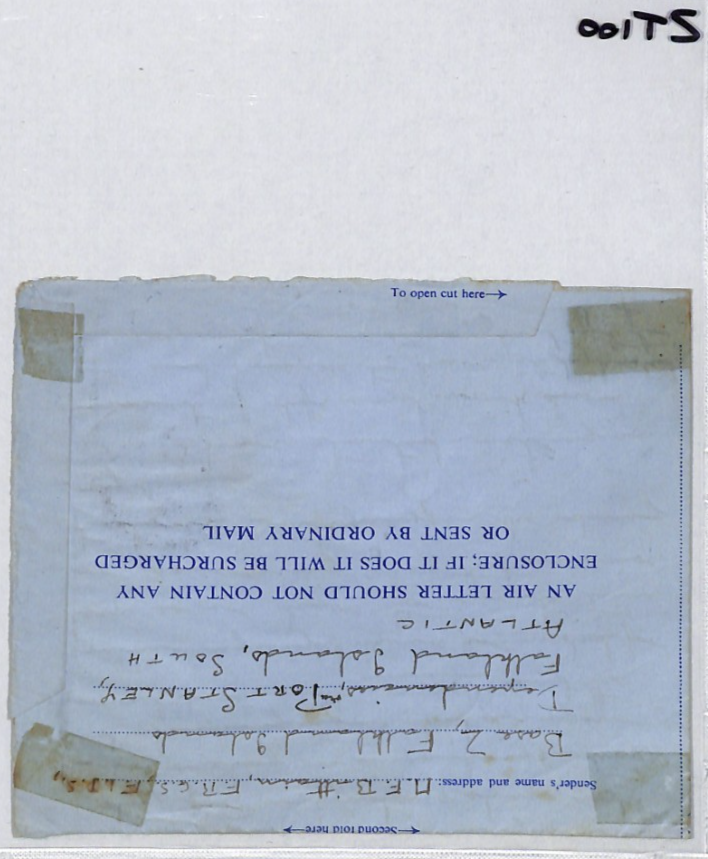 ST100
To open cut here→
←Second fold here→
Sender's name and address: M.E. Brittain, F.R.G.S., F.I.D.S.,
Base Z, Falkland Islands
Dependencies, PORT STANLEY,
Falkland Islands, SOUTH
ATLANTIC
AN AIR LETTER SHOULD NOT CONTAIN ANY
ENCLOSURE; IF IT DOES IT WILL BE SURCHARGED
OR SENT BY ORDINARY MAIL